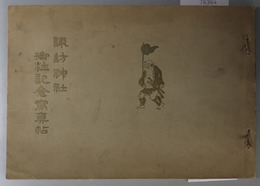 諏訪神社
御社記念寫真帖